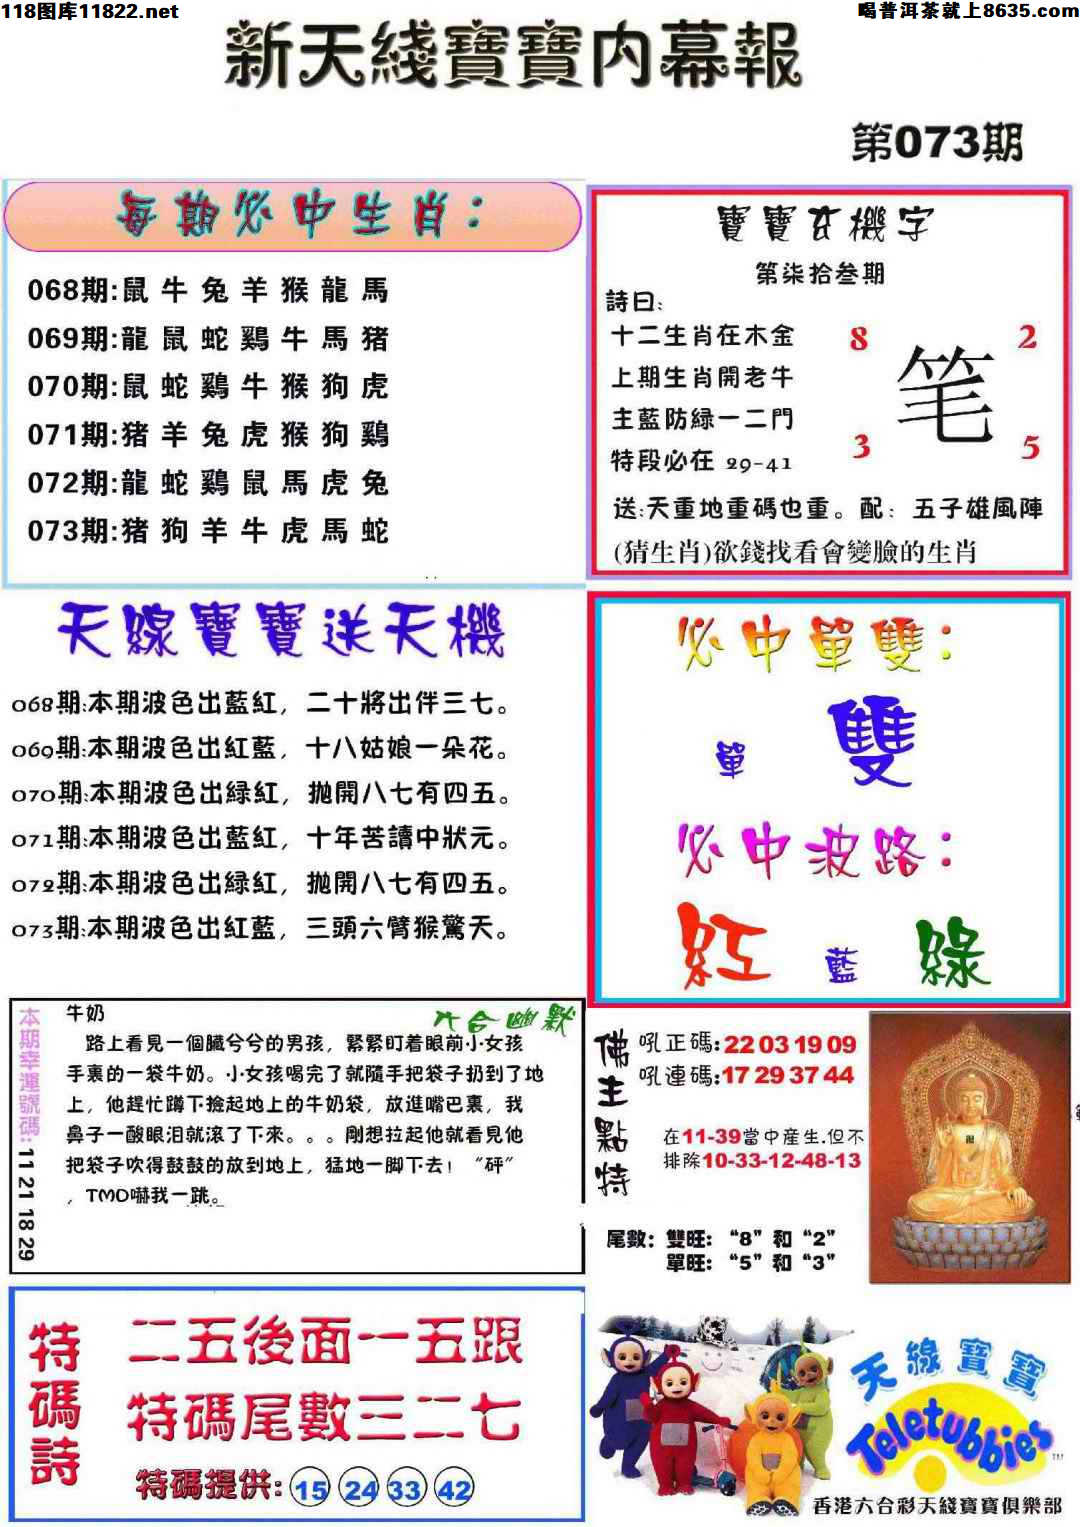 118图库11822.net
喝普洱茶就上8635.com
新天綫寶寶内幕報
第073期
每期必中生肖：
068期:鼠牛兔羊猴龍馬
069期:龍鼠蛇鷄牛馬猪
070期:鼠蛇鷄牛猴狗虎
071期:猪羊兔虎猴狗鷄
072期:龍蛇鷄鼠馬虎兔
073期:猪狗羊牛虎馬蛇
寶寶玄機字
第柒拾叁期
詩曰:
十二生肖在木金
上期生肖開老牛
主藍防緑一二門
特段必在 29-41
8
2
笔
3
5
送:天重地重碼也重。配：五子雄風陣
(猜生肖)欲錢找看會變臉的生肖
天線寶寶送天機
068期:本期波色出藍紅，二十將出伴三七。
069期:本期波色出紅藍，十八姑娘一朵花。
070期:本期波色出緑紅，抛開八七有四五。
071期:本期波色出藍紅，十年苦讀中狀元。
072期:本期波色出緑紅，抛開八七有四五。
073期:本期波色出紅藍，三頭六臂猴驚天。
必中單雙：
單
雙
必中波路：
紅
藍
綠
本期幸運號碼:11 21 18 29
六合幽默
牛奶
路上看見一個臟兮兮的男孩，緊緊盯着眼前小女孩
手裏的一袋牛奶。小女孩喝完了就隨手把袋子扔到了地
上，他趕忙蹲下撿起地上的牛奶袋，放進嘴巴裏，我
鼻子一酸眼泪就滚了下來。。。剛想拉起他就看見他
把袋子吹得鼓鼓的放到地上，猛地一脚下去！“砰”
，TMD嚇我一跳。
佛主點特
吼正碼:22 03 19 09
吼連碼:17 29 37 44
在11-39當中産生.但不
排除10-33-12-48-13
尾數：雙旺：“8”和“2”
單旺：“5”和“3”
特碼詩
二五後面一五跟
特碼尾數三二七
特碼提供: 15 24 33 42
天線寶寶
Teletubbies
TM
香港六合彩天綫寶寶俱樂部